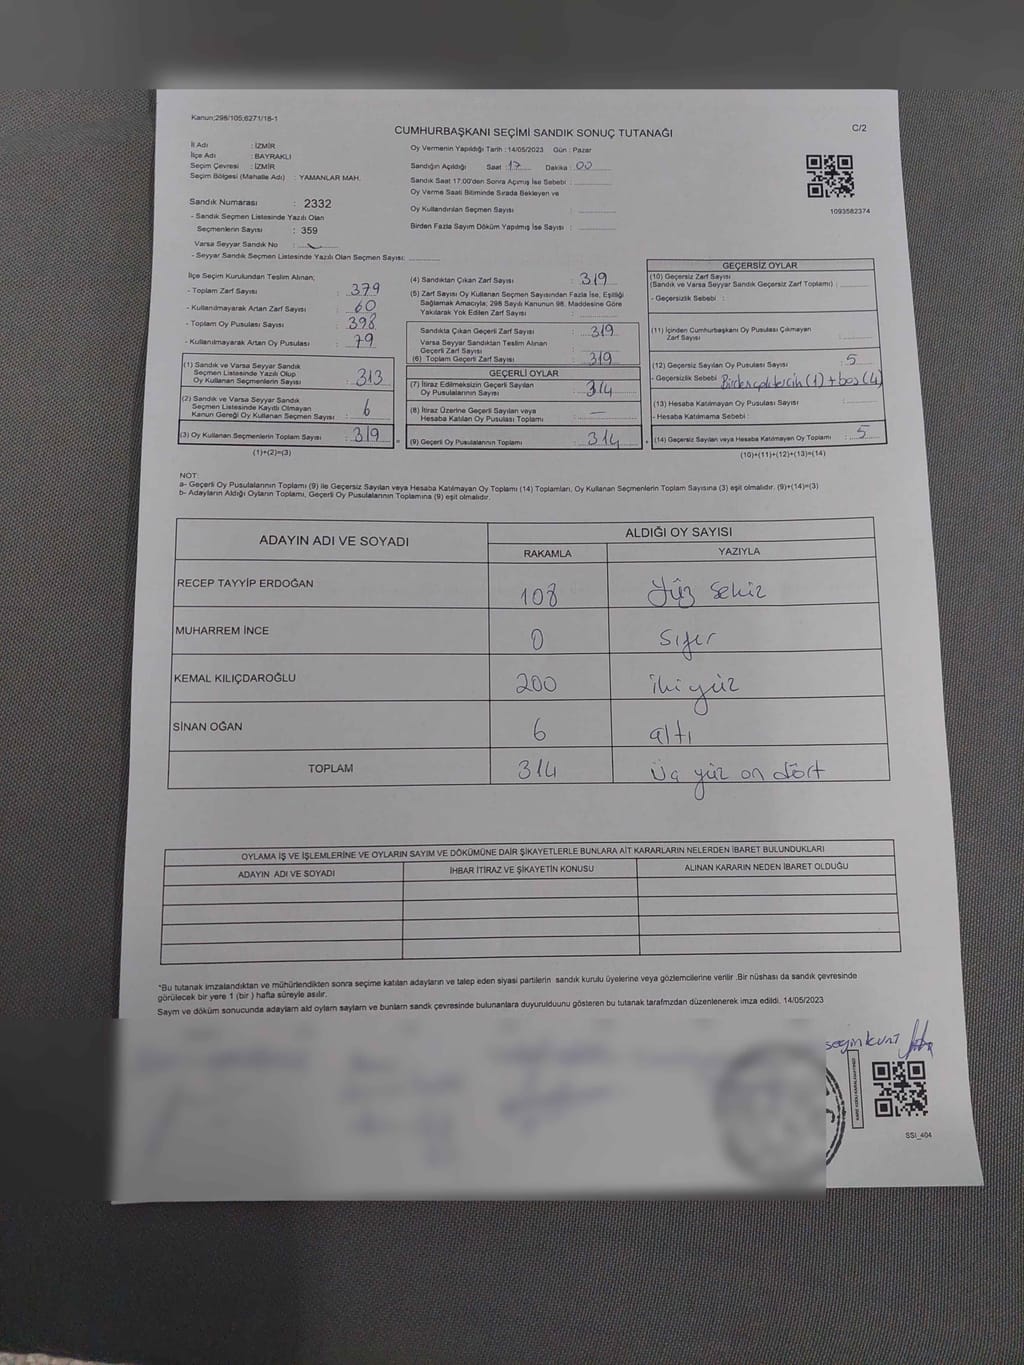 Kanun;298/105;6271/18-1
CUMHURBAŞKANI SEÇİMİ SANDIK SONUÇ TUTANAĞI
C/2
İl Adı : İZMİR
İlçe Adı : BAYRAKLI
Seçim Çevresi : İZMİR
Seçim Bölgesi (Mahalle Adı) : YAMANLAR MAH.
Sandık Numarası : 2332
- Sandık Seçmen Listesinde Yazılı Olan
Seçmenlerin Sayısı : 359
Varsa Seyyar Sandık No :
- Seyyar Sandık Seçmen Listesinde Yazılı Olan Seçmen Sayısı:
Oy Vermenin Yapıldığı Tarih : 14/05/2023 Gün : Pazar
Sandığın Açıldığı Saat : 17 Dakika : 00
Sandık Saat 17:00'den Sonra Açımış İse Sebebi :
Oy Verme Saati Bitiminde Sırada Bekleyen ve
Oy Kullandırılan Seçmen Sayısı :
Birden Fazla Sayım Döküm Yapılmış İse Sayısı :
1093582374
İlçe Seçim Kurulundan Teslim Alınan;
- Toplam Zarf Sayısı : 379
- Kullanılmayarak Artan Zarf Sayısı : 60
- Toplam Oy Pusulası Sayısı : 398
- Kullanılmayarak Artan Oy Pusulası : 79
(1) Sandık ve Varsa Seyyar Sandık
Seçmen Listesinde Yazılı Olup
Oy Kullanan Seçmenlerin Sayısı : 313
(2) Sandık ve Varsa Seyyar Sandık
Seçmen Listesinde Kayıtlı Olmayan
Kanun Gereği Oy Kullanan Seçmen Sayısı : 6
(3) Oy Kullanan Seçmenlerin Toplam Sayısı : 319
(1)+(2)=(3)
(4) Sandıktan Çıkan Zarf Sayısı : 319
(5) Zarf Sayısı Oy Kullanan Seçmen Sayısından Fazla İse, Eşitliği
Sağlamak Amacıyla; 298 Sayılı Kanunun 98. Maddesine Göre
Yakılarak Yok Edilen Zarf Sayısı :
Sandıkta Çıkan Geçerli Zarf Sayısı : 319
Varsa Seyyar Sandıktan Teslim Alınan
Geçerli Zarf Sayısı :
(6) Toplam Geçerli Zarf Sayısı : 319
GEÇERLİ OYLAR
(7) İtiraz Edilmeksizin Geçerli Sayılan
Oy Pusulasının Sayısı : 314
(8) İtiraz Üzerine Geçerli Sayılan veya
Hesaba Katılan Oy Pusulası Toplamı : —
(9) Geçerli Oy Pusulalarının Toplamı : 314
GEÇERSİZ OYLAR
(10) Geçersiz Zarf Sayısı
(Sandık ve Varsa Seyyar Sandık Geçersiz Zarf Toplamı) :
- Geçersizlik Sebebi :
(11) İçinden Cumhurbaşkanı Oy Pusulası Çıkmayan
Zarf Sayısı :
(12) Geçersiz Sayılan Oy Pusulası Sayısı : 5
- Geçersizlik Sebebi (1) + boş (4)
(13) Hesaba Katılmayan Oy Pusulası Sayısı :
- Hesaba Katılmama Sebebi :
(14) Geçersiz Sayılan veya Hesaba Katılmayan Oy Toplamı : 5
(10)+(11)+(12)+(13)=(14)
NOT:
a- Geçerli Oy Pusulalarının Toplamı (9) ile Geçersiz Sayılan veya Hesaba Katılmayan Oy Toplamı (14) Toplamları, Oy Kullanan Seçmenlerin Toplam Sayısına (3) eşit olmalıdır. (9)+(14)=(3)
b- Adayların Aldığı Oyların Toplamı, Geçerli Oy Pusulalarının Toplamına (9) eşit olmalıdır.
ADAYIN ADI VE SOYADI ALDIĞI OY SAYISI
RAKAMLA YAZIYLA
RECEP TAYYİP ERDOĞAN 108 Yüz Sekiz
MUHARREM İNCE 0 Sıfır
KEMAL KILIÇDAROĞLU 200 iki yüz
SİNAN OĞAN 6 altı
TOPLAM 314 Üç yüz on dört
OYLAMA İŞ VE İŞLEMLERİNE VE OYLARIN SAYIM VE DÖKÜMÜNE DAİR ŞİKAYETLERLE BUNLARA AİT KARARLARIN NELERDEN İBARET BULUNDUKLARI
ADAYIN ADI VE SOYADI İHBAR İTİRAZ VE ŞİKAYETİN KONUSU ALINAN KARARIN NEDEN İBARET OLDUĞU
*Bu tutanak imzalandıktan ve mühürlendikten sonra seçime katılan adayların ve talep eden siyasi partilerin sandık kurulu üyelerine veya gözlemcilerine verilir .Bir nüshası da sandık çevresinde
görülecek bir yere 1 (bir ) hafta süreyle asılır.
Sayım ve döküm sonucunda adayların ald oylarn sayların ve bunların sandk çevresinde bulunanlara duyurulduunu gösteren bu tutanak tarafmzdan düzenlenerek imza edildi. 14/05/2023
SSI_404